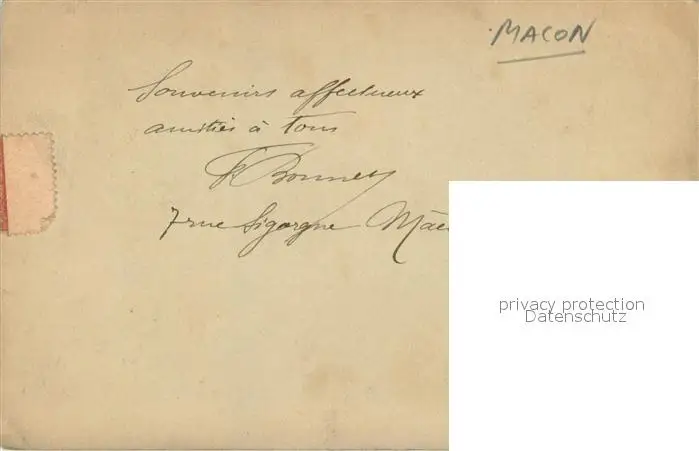 MACON
Souvenirs affectueux
amitiés à tous
Bonney
7 rue Sigorgne Mâc
privacy protection
Datenschutz